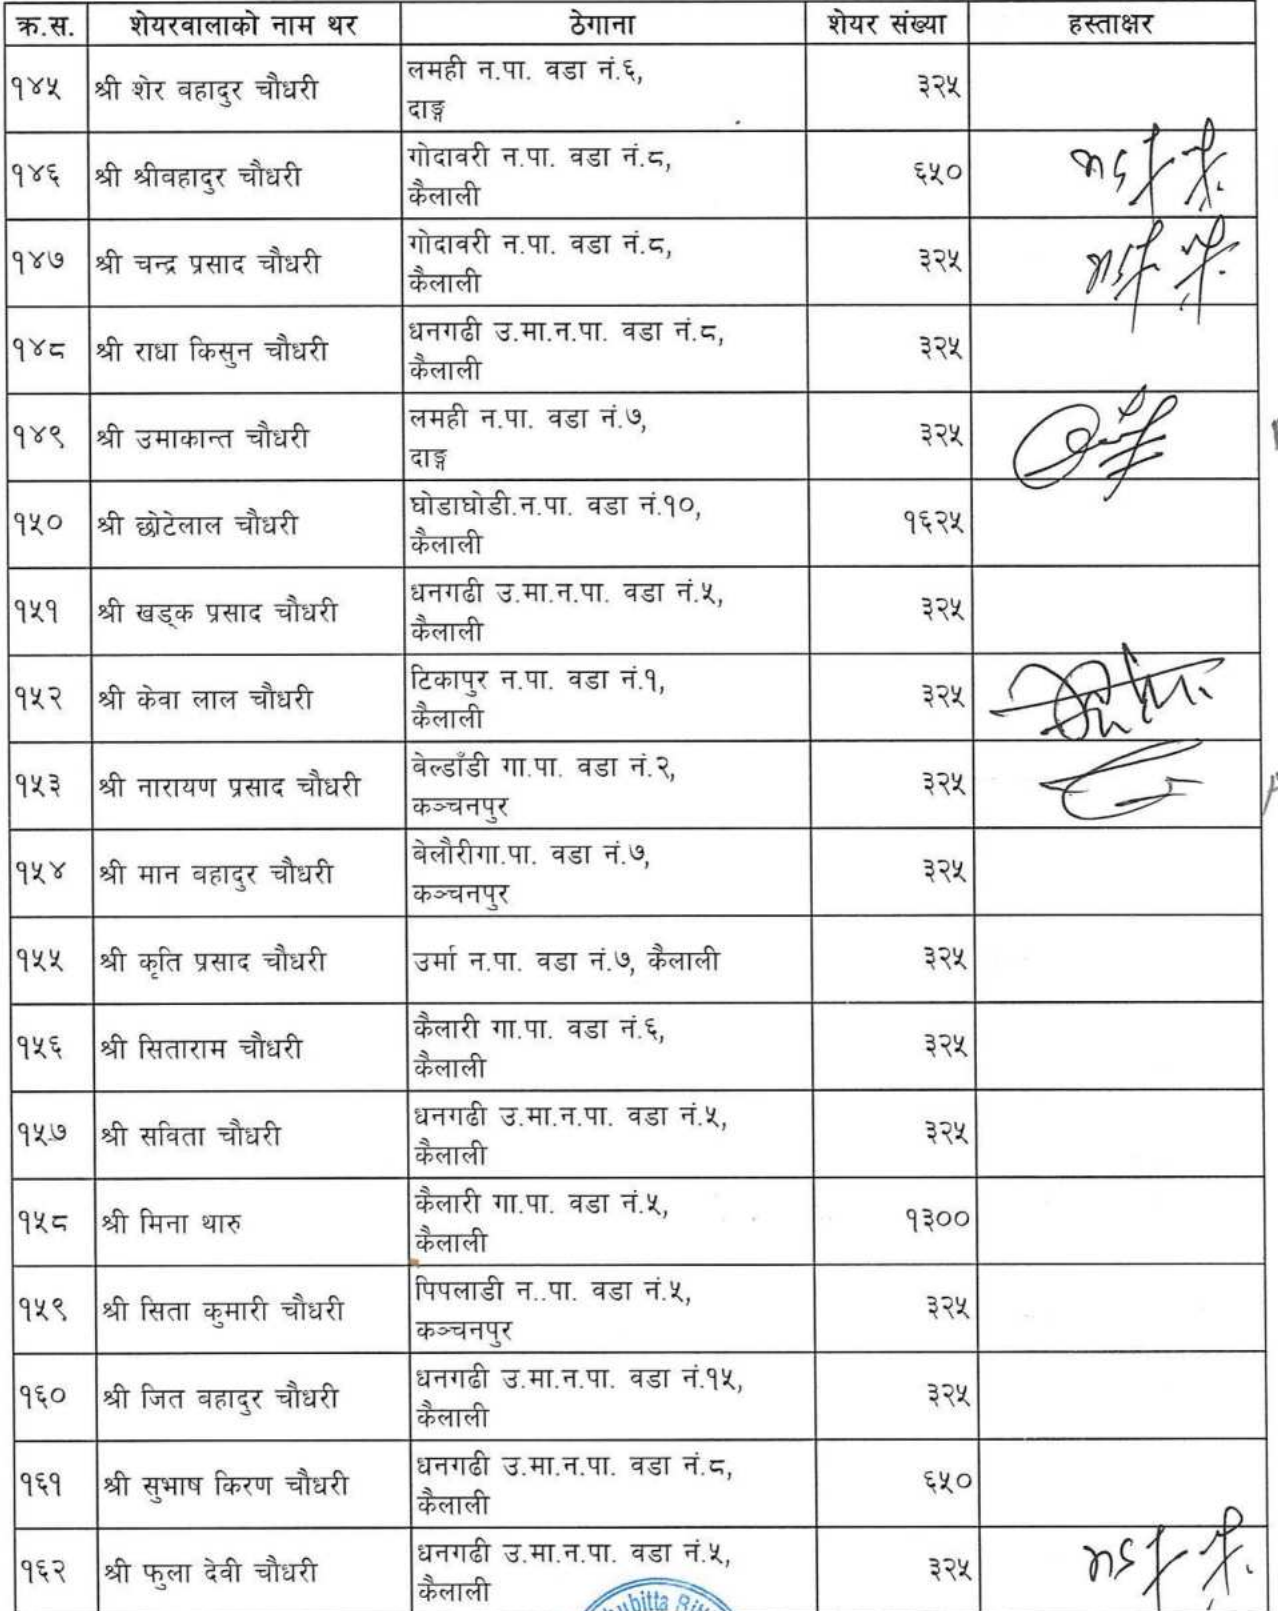 क्र.स. शेयरवालाको नाम थर ठेगाना शेयर संख्या हस्ताक्षर
१४५ श्री शेर बहादुर चौधरी लमही न.पा. वडा नं.६, ३२५
दाङ्ग
१४६ श्री श्रीबहादुर चौधरी गोदावरी न.पा. वडा नं.८, ६५०
कैलाली
१४७ श्री चन्द्र प्रसाद चौधरी गोदावरी न.पा. वडा नं.८, ३२५
कैलाली
१४८ श्री राधा किसुन चौधरी धनगढी उ.मा.न.पा. वडा नं.८, ३२५
कैलाली
१४९ श्री उमाकान्त चौधरी लमही न.पा. वडा नं.७, ३२५
दाङ्ग
१५० श्री छोटेलाल चौधरी घोडाघोडी.न.पा. वडा नं.१०, १६२५
कैलाली
१५१ श्री खड्क प्रसाद चौधरी धनगढी उ.मा.न.पा. वडा नं.५, ३२५
कैलाली
१५२ श्री केवा लाल चौधरी टिकापुर न.पा. वडा नं.१, ३२५
कैलाली
१५३ श्री नारायण प्रसाद चौधरी बेल्डाँडी गा.पा. वडा नं.२, ३२५
कञ्चनपुर
१५४ श्री मान बहादुर चौधरी बेलौरीगा.पा. वडा नं.७, ३२५
कञ्चनपुर
१५५ श्री कृति प्रसाद चौधरी उर्मा न.पा. वडा नं.७, कैलाली ३२५
१५६ श्री सिताराम चौधरी कैलारी गा.पा. वडा नं.६, ३२५
कैलाली
१५७ श्री सविता चौधरी धनगढी उ.मा.न.पा. वडा नं.५, ३२५
कैलाली
१५८ श्री मिना थारु कैलारी गा.पा. वडा नं.५, १३००
कैलाली
१५९ श्री सिता कुमारी चौधरी पिपलाडी न..पा. वडा नं.५, ३२५
कञ्चनपुर
१६० श्री जित बहादुर चौधरी धनगढी उ.मा.न.पा. वडा नं.१५, ३२५
कैलाली
१६१ श्री सुभाष किरण चौधरी धनगढी उ.मा.न.पा. वडा नं.८, ६५०
कैलाली
१६२ श्री फुला देवी चौधरी धनगढी उ.मा.न.पा. वडा नं.५, ३२५
कैलाली